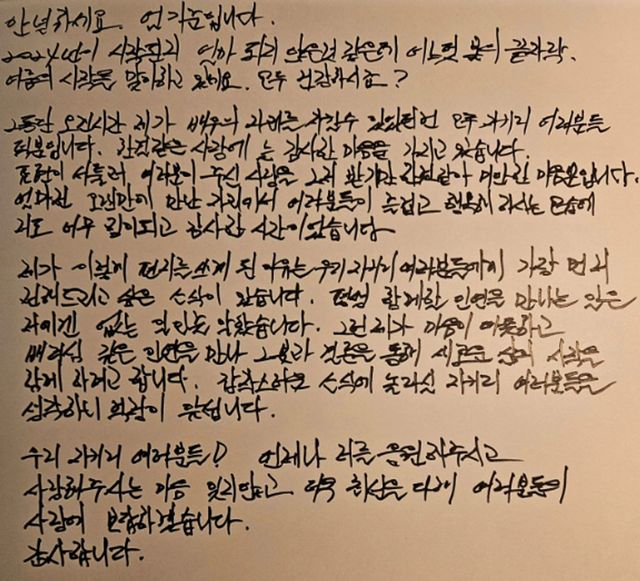 안녕하세요. 엄기준입니다.
2024년이 시작된지 얼마 되지 않은것 같은데 어느덧 봄의 끝자락,
여름의 시작을 맞이하고 있네요. 모두 건강하시죠?
그동안 오랜시간 제가 배우의 자리를 지킬수 있었던건 모두 여러분들
덕분입니다. 한결같은 사랑에 늘 감사한 마음을 가지고 있습니다.
표현이 서툴러 여러분이 주신 사랑을 그저 받기만 한것같아 미안한 마음뿐입니다.
얼마전 오랜만에 만난 자리에서 여러분들이 즐겁고 행복해 하시는 모습에
저도 너무 감사한 시간이었습니다
제가 이렇게 편지를 쓰게 된 이유는 우리 여러분들에게 가장 먼저
전해드리고 싶은 소식이 있습니다. 평생 함께할 인연을 만나는 일은
저에겐 없는 일인줄 알았습니다. 그런 제가 마음이 따뜻하고
배려심 깊은 인연을 만나 그분과 결혼을 통해 새로운 삶의 시작을
함께 하려고 합니다. 갑작스러운 소식에 놀라실 여러분들을
생각하니 걱정이 됩니다.
우리 여러분들! 언제나 저를 응원해주시고
사랑해주시는 마음 잊지않고 더욱 최선을 다해 여러분들의
사랑에 보답하겠습니다.
감사합니다.